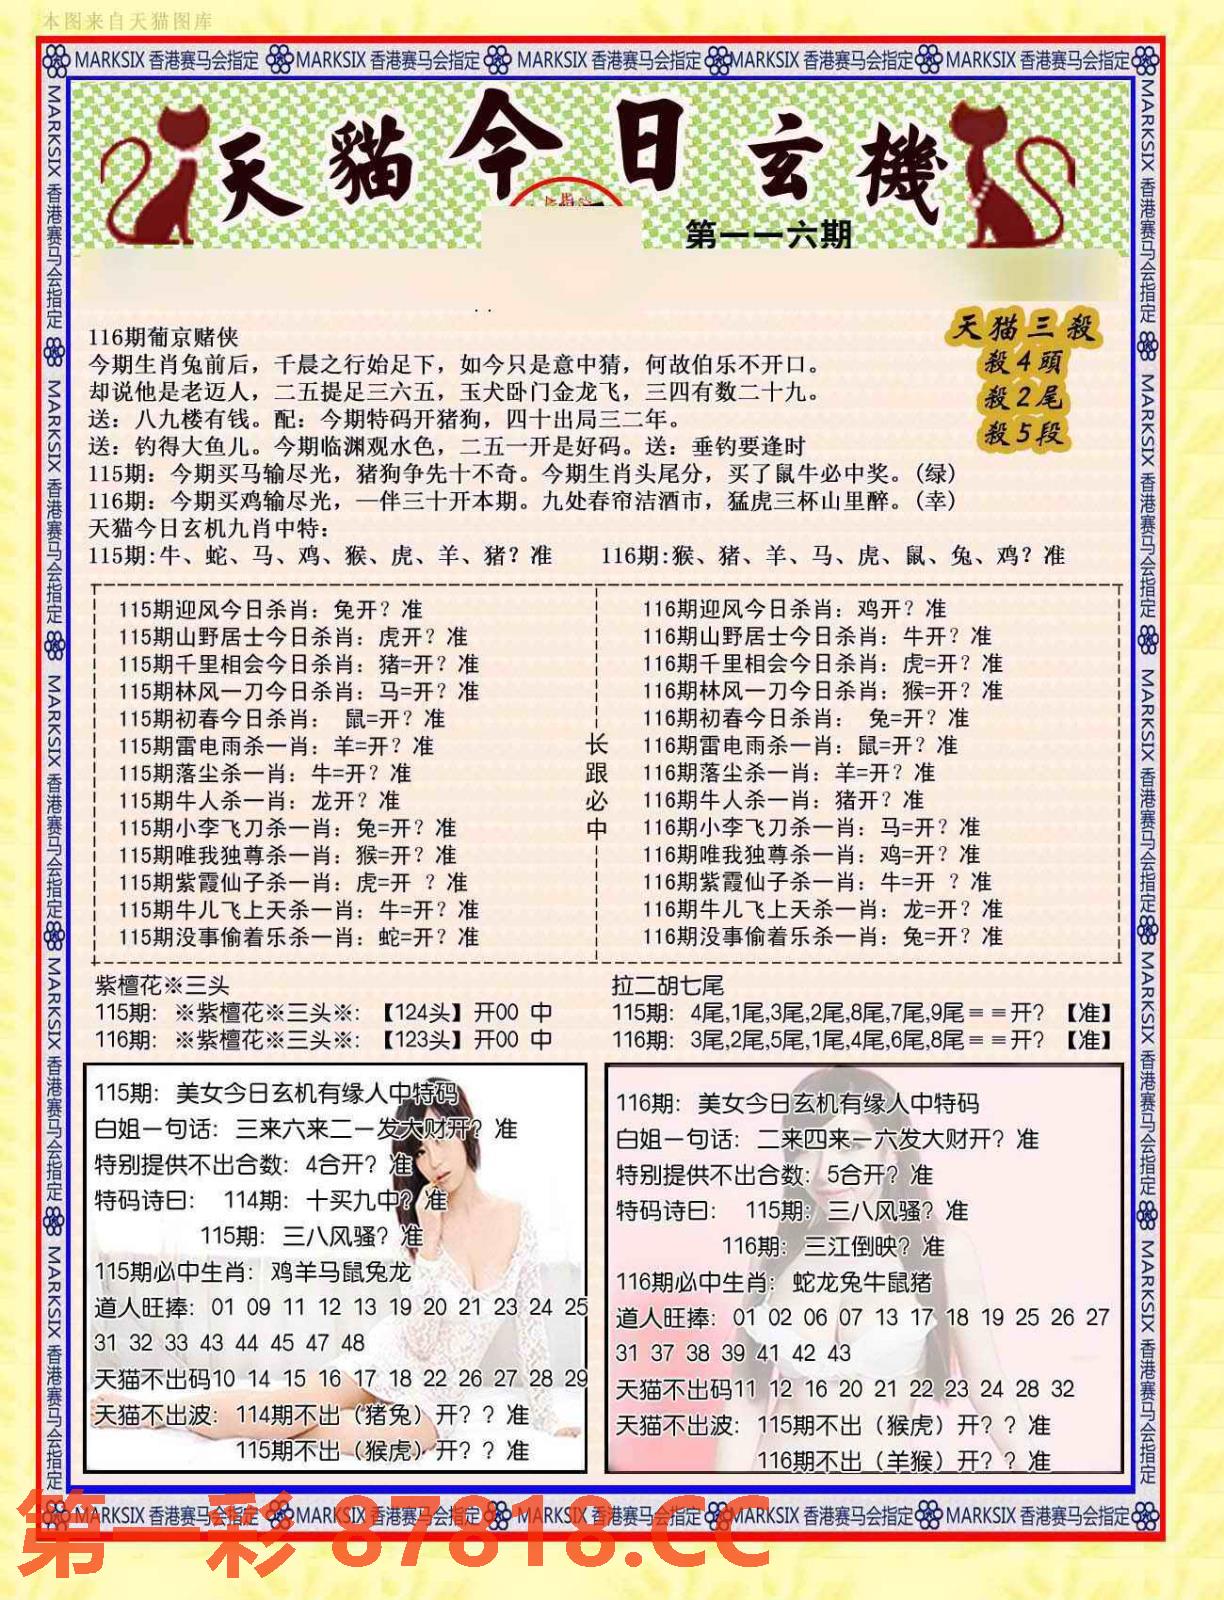 本图来自天猫图库
MARKSIX 香港赛马会指定 MARKSIX 香港赛马会指定 MARKSIX 香港赛马会指定 MARKSIX 香港赛马会指定 MARKSIX 香港赛马会指定
MARKSIX 香港赛马会指定 MARKSIX 香港赛马会指定 MARKSIX 香港赛马会指定 MARKSIX 香港赛马会指定 MARKSIX 香港赛马会指定
MARKSIX 香港赛马会指定 MARKSIX 香港赛马会指定 MARKSIX 香港赛马会指定 MARKSIX 香港赛马会指定 MARKSIX 香港赛马会指定
天貓今日玄機
第一一六期
天猫三殺
殺4頭
殺2尾
殺5段
116期葡京赌侠
今期生肖兔前后，千晨之行始足下，如今只是意中猜，何故伯乐不开口。
却说他是老迈人，二五提足三六五，玉犬卧门金龙飞，三四有数二十九。
送：八九楼有钱。配：今期特码开猪狗，四十出局三二年。
送：钓得大鱼儿。今期临渊观水色，二五一开是好码。送：垂钓要逢时
115期：今期买马输尽光，猪狗争先十不奇。今期生肖头尾分，买了鼠牛必中奖。(绿)
116期：今期买鸡输尽光，一伴三十开本期。九处春帘洁酒市，猛虎三杯山里醉。(幸)
天猫今日玄机九肖中特：
115期:牛、蛇、马、鸡、猴、虎、羊、猪？准 116期:猴、猪、羊、马、虎、鼠、兔、鸡？准
115期迎风今日杀肖：兔开？准
115期山野居士今日杀肖：虎开？准
115期千里相会今日杀肖：猪=开？准
115期林风一刀今日杀肖：马=开？准
115期初春今日杀肖： 鼠=开？准
115期雷电雨杀一肖：羊=开？准
115期落尘杀一肖：牛=开？准
115期牛人杀一肖：龙开？准
115期小李飞刀杀一肖：兔=开？准
115期唯我独尊杀一肖：猴=开？准
115期紫霞仙子杀一肖：虎=开 ？准
115期牛儿飞上天杀一肖：牛=开？准
115期没事偷着乐杀一肖：蛇=开？准
长跟必中
116期迎风今日杀肖：鸡开？准
116期山野居士今日杀肖：牛开？准
116期千里相会今日杀肖：虎=开？准
116期林风一刀今日杀肖：猴=开？准
116期初春今日杀肖： 兔=开？准
116期雷电雨杀一肖：鼠=开？准
116期落尘杀一肖：羊=开？准
116期牛人杀一肖：猪开？准
116期小李飞刀杀一肖：马=开？准
116期唯我独尊杀一肖：鸡=开？准
116期紫霞仙子杀一肖：牛=开 ？准
116期牛儿飞上天杀一肖：龙=开？准
116期没事偷着乐杀一肖：兔=开？准
紫檀花※三头
115期：※紫檀花※三头※：【124头】开00 中
116期：※紫檀花※三头※：【123头】开00 中
拉二胡七尾
115期：4尾,1尾,3尾,2尾,8尾,7尾,9尾＝＝开？【准】
116期：3尾,2尾,5尾,1尾,4尾,6尾,8尾＝＝开？【准】
115期：美女今日玄机有缘人中特码
白姐一句话：三来六来二一发大财开？准
特别提供不出合数：4合开？准
特码诗曰： 114期：十买九中？准
115期：三八风骚？准
115期必中生肖：鸡羊马鼠兔龙
道人旺捧：01 09 11 12 13 19 20 21 23 24 25
31 32 33 43 44 45 47 48
天猫不出码10 14 15 16 17 18 22 26 27 28 29
天猫不出波：114期不出（猪兔）开？？准
115期不出（猴虎）开？？准
116期：美女今日玄机有缘人中特码
白姐一句话：二来四来一六发大财开？准
特别提供不出合数：5合开？准
特码诗曰： 115期：三八风骚？准
116期：三江倒映？准
116期必中生肖：蛇龙兔牛鼠猪
道人旺捧：01 02 06 07 13 17 18 19 25 26 27
31 37 38 39 41 42 43
天猫不出码11 12 16 20 21 22 23 24 28 32
天猫不出波：115期不出（猴虎）开？？准
116期不出（羊猴）开？？准
MARKSIX 香港赛马会指定 MARKSIX 香港赛马会指定 MARKSIX 香港赛马会指定 MARKSIX 香港赛马会指定 MARKSIX 香港赛马会指定
第一彩 87818.CC